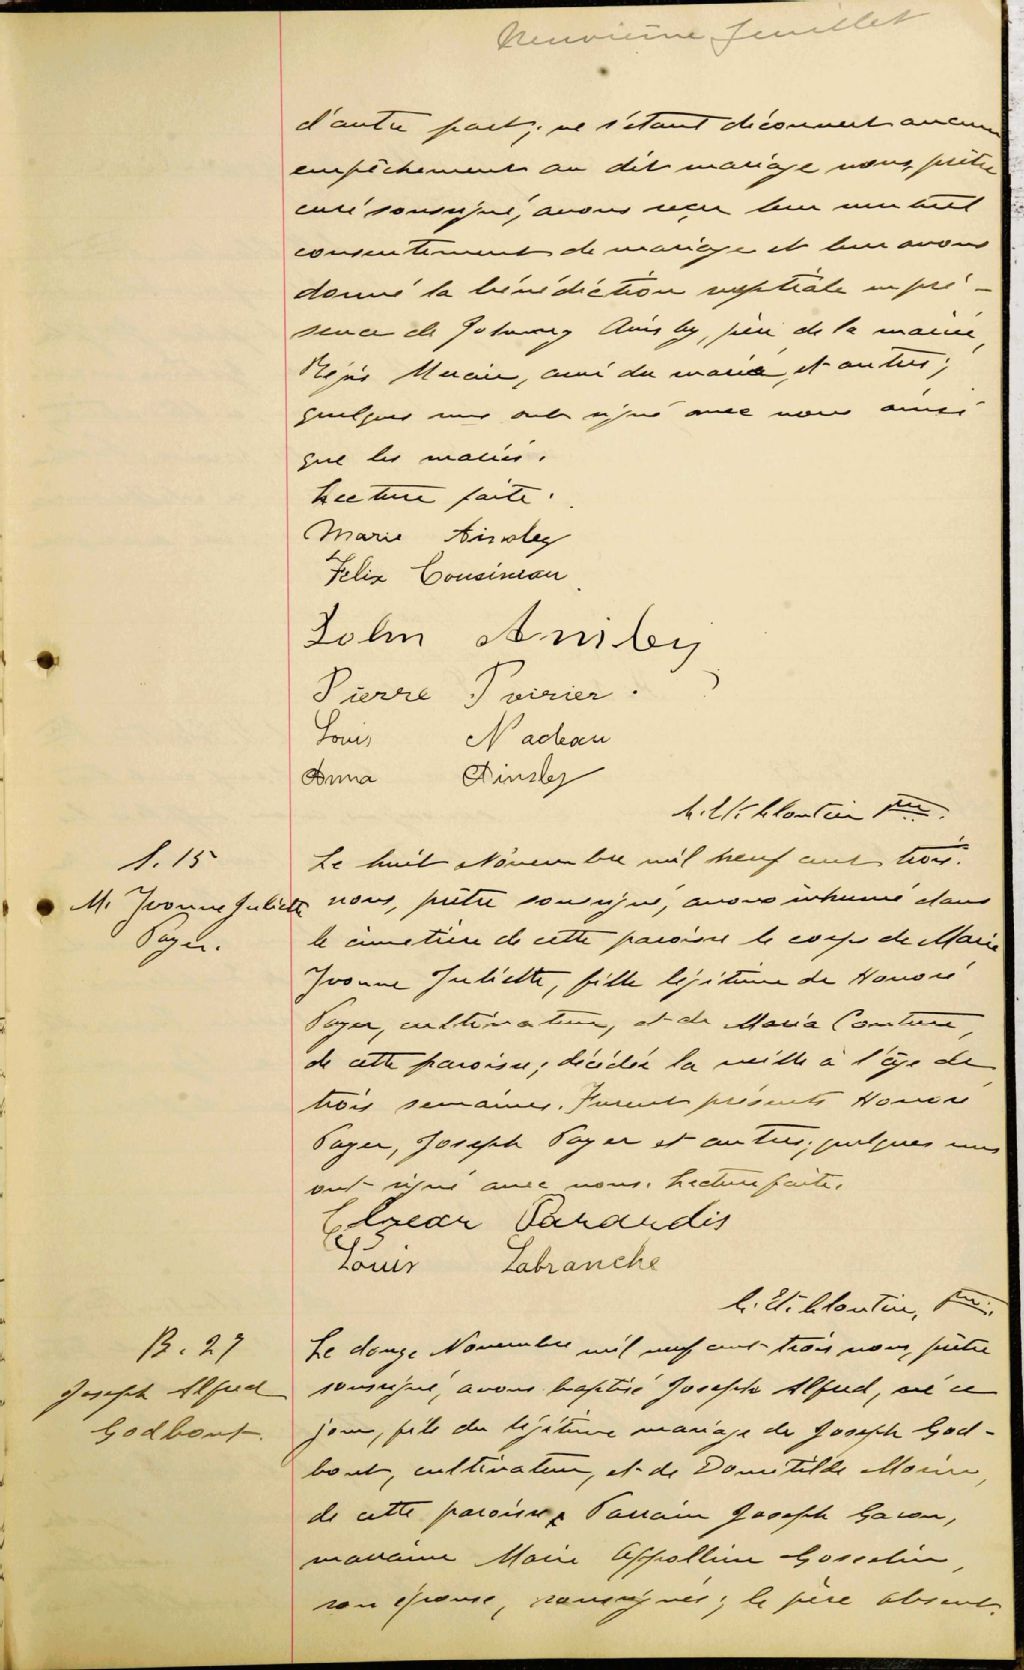 Neuvième feuillet
d'autre part; ne s'étant découvert aucun
empêchement au dit mariage nous, prêtre
curé soussigné, avons reçu leur mutuel
consentement de mariage et leur avons
donné la bénédiction nuptiale en pré-
sence de Johnny Ainsley, père de la mariée,
Régis Mercier, ami du marié, et autres;
quelques uns ont signé avec nous ainsi
que les mariés.
Lecture faite.
Marie Ainsley
Felix Cousineau
John Ainsley
Pierre Poirier.
Louis Nadeau
Anna Ainsley
Cloutier Ptre.
S. 15
M. Yvonne Juliette
Payer.
Le huit Novembre mil neuf cent trois.
nous, prêtre soussigné, avons inhumé dans
le cimetière de cette paroisse le corps de Marie
Yvonne Juliette, fille légitime de Honoré
Payer, cultivateur, et de Maria Couture,
de cette paroisse; décédée la veille à l'âge de
trois semaines. Furent présents Honoré
Payer, Joseph Payer et autres; quelques uns
ont signé avec nous. Lecture faite.
Elzear Paradis
Louis Labranche
Cloutier, Ptre.
B. 27
Joseph Alfred
Godbout.
Le douze Novembre mil neuf cent trois nous, prêtre
soussigné, avons baptisé Joseph Alfred, né ce
jour, fils du légitime mariage de Joseph God-
bout, cultivateur, et de Domitilde Morin,
de cette paroisse. Parrain Joseph Garon,
marraine Marie Appolline Gosselin,
son épouse, soussignés; le père absent.